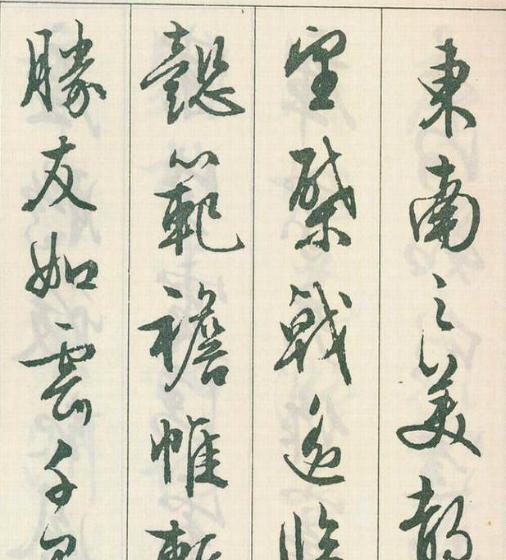 東南之美都
望棨戟遥臨
懿範襜帷暫
勝友如雲千里